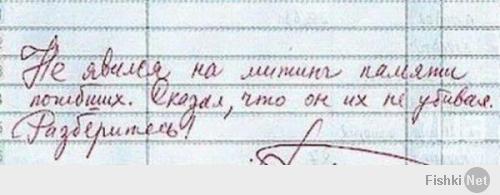 Не явился на митинг памяти
погибших. Сказал, что он их не убивал.
Разберитесь!
Fishki Net